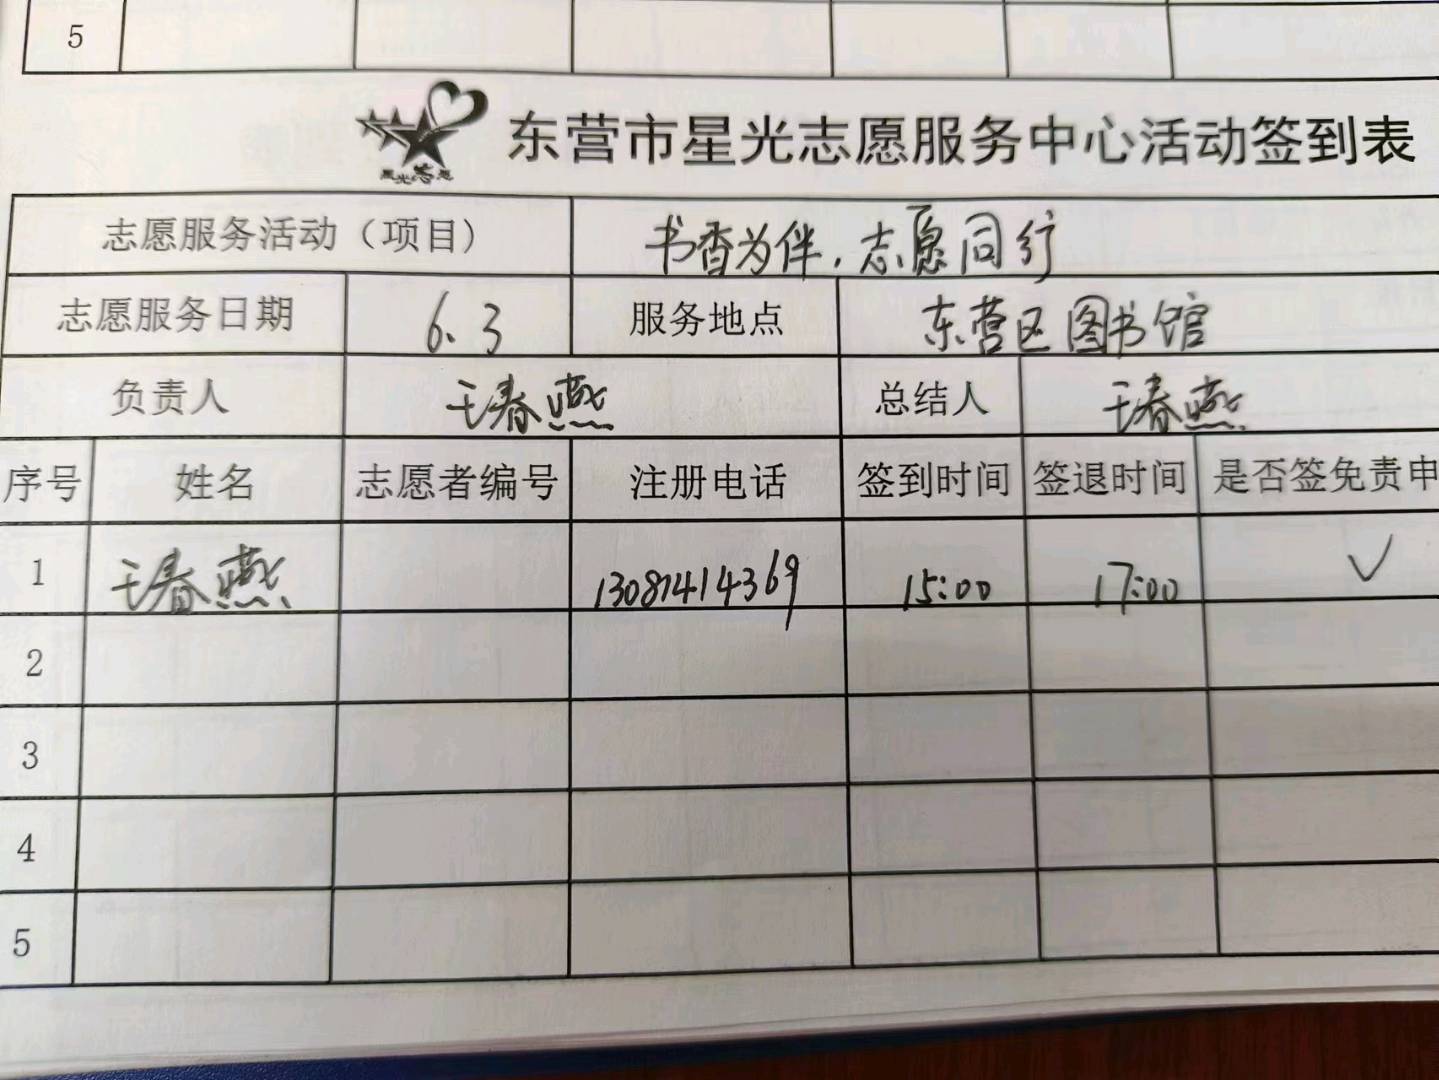 5
星光志愿
东营市星光志愿服务中心活动签到表
志愿服务活动（项目） 书香为伴，志愿同行
志愿服务日期 6.3 服务地点 东营区图书馆
负责人 王春燕 总结人 王春燕
序号 姓名 志愿者编号 注册电话 签到时间 签退时间 是否签免责申
1 王春燕 13081414369 15:00 17:00 √
2
3
4
5